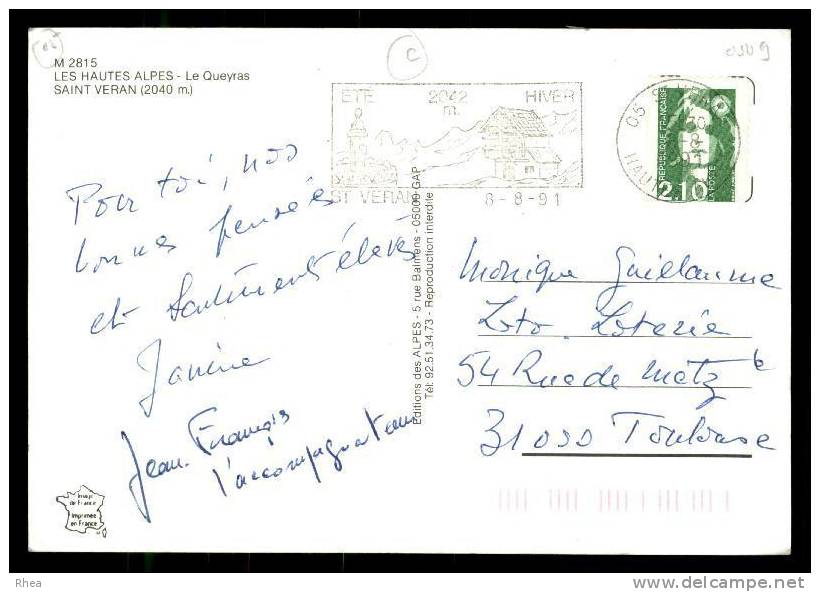 M 2815
LES HAUTES ALPES - Le Queyras
SAINT VERAN (2040 m.)
C
ETE 2042 m. HIVER
ST VERAN 8-8-91
05
HAUTES
REPUBLIQUE FRANÇAISE
LA POSTE
2,10
Pour toi, nos
bonnes pensées
et sentiments élevés
Janine
Jean-François
l'accompagnateur
Editions des ALPES - 5 rue Balmens - 05000 GAP
Tél: 92.51.34.73 - Reproduction interdite
Monique Guillaume
Loto. Loterie
54 Rue de Metz
31000 Toulouse
Image
de France
Imprimée
en France
Rhea
www.delcampe.net